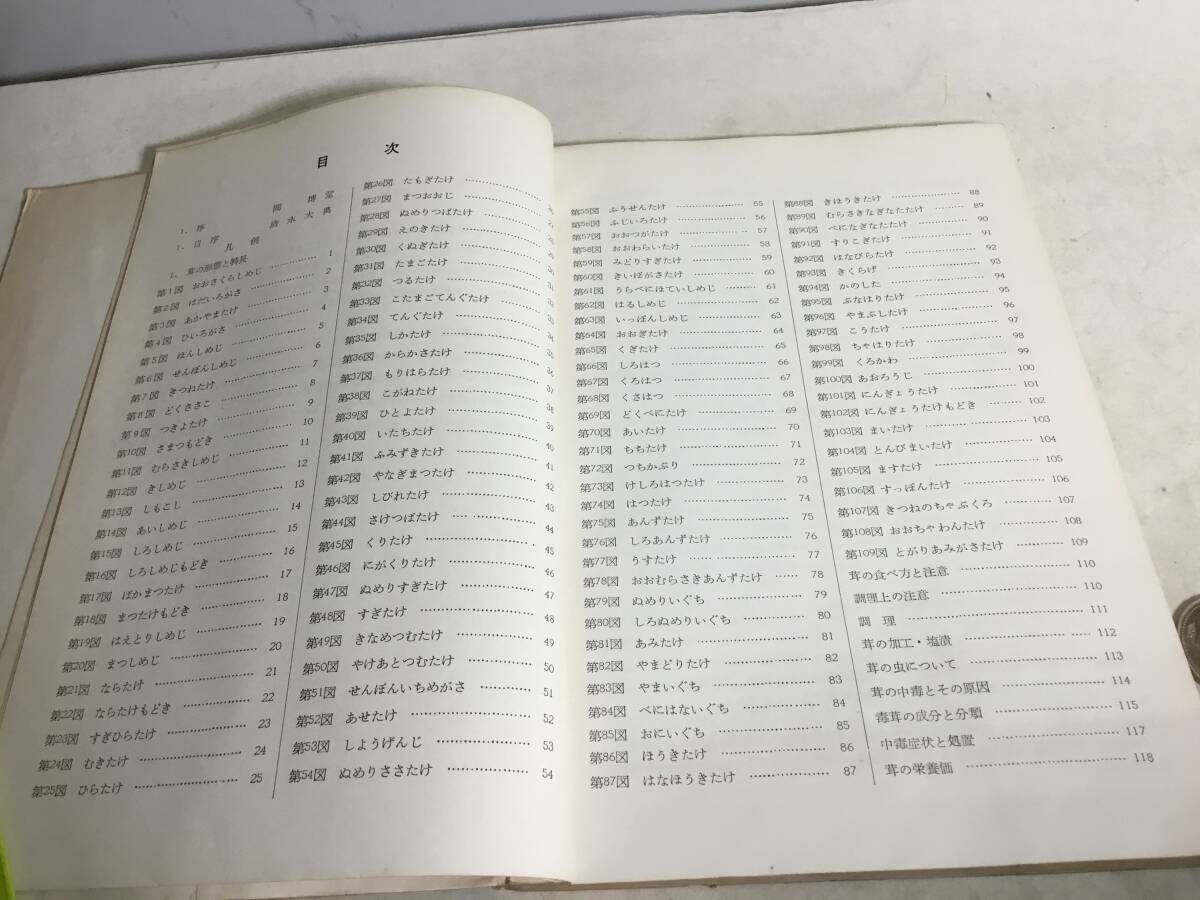 目 次
1. 序 岡 博堂
1. 自序 清水大典
凡 例
1. 茸の形態と特長
第1図 おおさくらしめじ 1
第2図 はだいろがさ 2
第3図 あかやまたけ 3
第4図 ひいろがさ 4
第5図 ほんしめじ 5
第6図 せんぼんしめじ 6
第7図 きつねたけ 7
第8図 どくささこ 8
第9図 つきよたけ 9
第10図 さまつもどき 10
第11図 むらさきしめじ 11
第12図 きしめじ 12
第13図 しもこし 13
第14図 あいしめじ 14
第15図 しろしめじ 15
第16図 しろしめじもどき 16
第17図 ばかまつたけ 17
第18図 まつたけもどき 18
第19図 はえとりしめじ 19
第20図 まつしめじ 20
第21図 ならたけ 21
第22図 ならたけもどき 22
第23図 すぎひらたけ 23
第24図 むきたけ 24
第25図 ひらたけ 25
第26図 たもぎたけ
第27図 まつおおじ
第28図 ぬめりつばたけ
第29図 えのきたけ
第30図 くぬぎたけ
第31図 たまごたけ 31
第32図 つるたけ
第33図 こたまごてんぐたけ
第34図 てんぐたけ
第35図 しかたけ
第36図 からかさたけ
第37図 もりはらたけ
第38図 こがねたけ
第39図 ひとよたけ 39
第40図 いたちたけ 40
第41図 ふみずきたけ 41
第42図 やなぎまつたけ 42
第43図 しびれたけ 43
第44図 さけつばたけ 44
第45図 くりたけ 45
第46図 にがくりたけ 46
第47図 ぬめりすぎたけ 47
第48図 すぎたけ 48
第49図 きなめつむたけ 49
第50図 やけあとつむたけ 50
第51図 せんぼんいちめがさ 51
第52図 あせたけ 52
第53図 しようげんじ 53
第54図 ぬめりささたけ 54
第55図 ふうせんたけ 55
第56図 ふじいろたけ 56
第57図 おおつがたけ 57
第58図 おおわらいたけ 58
第59図 みどりすぎたけ 59
第60図 きいぼがさたけ 60
第61図 うらべにほていしめじ 61
第62図 はるしめじ 62
第63図 いっぽんしめじ 63
第64図 おおぎたけ 64
第65図 くぎたけ 65
第66図 しろはつ 66
第67図 くろはつ 67
第68図 くさはつ 68
第69図 どくべにたけ 69
第70図 あいたけ 70
第71図 ちちたけ 71
第72図 つちかぶり 72
第73図 けしろはつたけ 73
第74図 はつたけ 74
第75図 あんずたけ 75
第76図 しろあんずたけ 76
第77図 うすたけ 77
第78図 おおむらさきあんずたけ 78
第79図 ぬめりいぐち 79
第80図 しろぬめりいぐち 80
第81図 あみたけ 81
第82図 やまどりたけ 82
第83図 やまいぐち 83
第84図 べにはないぐち 84
第85図 おにいぐち 85
第86図 ほうきたけ 86
第87図 はなほうきたけ 87
第88図 きほうきたけ 88
第89図 むらさきなぎなたたけ 89
第90図 べになぎなたたけ 90
第91図 すりこぎたけ 91
第92図 はなびらたけ 92
第93図 きくらげ 93
第94図 かのした 94
第95図 ぶなはりたけ 95
第96図 やまぶしたけ 96
第97図 こうたけ 97
第98図 ちゃはりたけ 98
第99図 くろかわ 99
第100図 あおろうじ 100
第101図 にんぎょうたけ 101
第102図 にんぎょうたけもどき 102
第103図 まいたけ 103
第104図 とんびまいたけ 104
第105図 ますたけ 105
第106図 すっぽんたけ 106
第107図 きつねのちゃぶくろ 107
第108図 おおちゃわんたけ 108
第109図 とがりあみがさたけ 109
茸の食べ方と注意 110
調理上の注意 110
調 理 111
茸の加工・塩漬 112
茸の虫について 113
茸の中毒とその原因 114
毒茸の成分と分類 115
中毒症状と処置 117
茸の栄養価 118